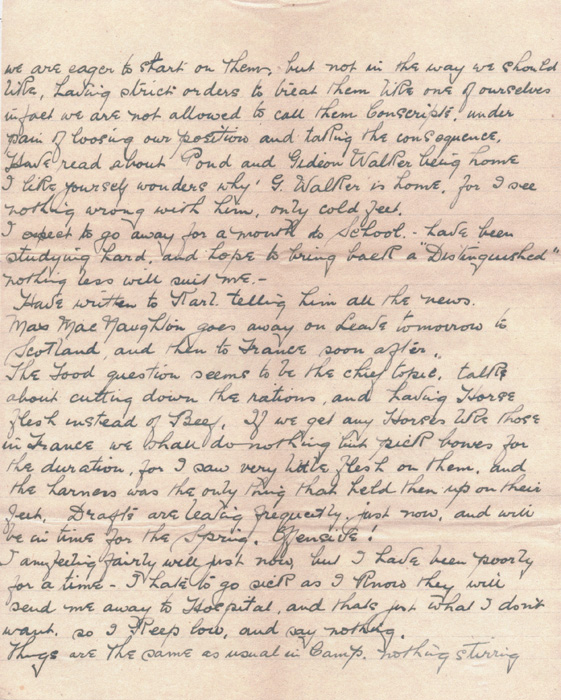 we are eager to start on them, but not in the way we should
like, having strict orders to treat them like one of ourselves
infact we are not allowed to call them Conscripts, under
pain of loosing our position and taking the consequence.
Have read about Pond and Gideon Walker being home
I like yourself wonders why G. Walker is home, for I see
nothing wrong with him, only cold feet.
I expect to go away for a month to School. - have been
studying hard, and hope to bring back a "Distinguished"
nothing less will suit me. -
Have written to Karl. telling him all the news.
Max MacNaughton goes away on Leave tomorrow to
Scotland, and then to France soon after.
The Food question seems to be the chief topic. talks
about cutting down the rations, and having Horse
flesh instead of Beef. If we get any Horses like those
in France we shall do nothing but pick bones for
the duration, for I saw very little flesh on them, and
the harness was the only thing that held them up on their
feet. Drafts are leaving frequently, just now, and will
be in time for the Spring. Offensive!
I am feeling fairly well just now, but I have been poorly
for a time - I hate to go sick as I know they will
send me away to Hospital, and thats just what I don't
want. so I keep low, and say nothing.
Things are the same as usual in Camp. nothing stirring